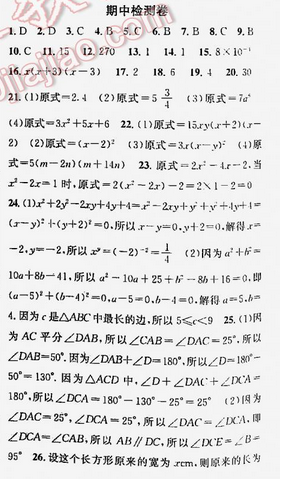 期中检测卷
1. D 2. D 3. C 4. C 5. B 6. B 7. B 8. C 9. B
10. C 11. 15 12. 270 13. 1 14. 1 15. 8×10
16. x(x+3)(x-3) 17. 2 18. 6 19. 4 20. 30
21. (1)原式=2.4 (2)原式=5 3/4 (3)原式=7a
(4)原式=3x²+5x+6 22. (1)原式=15xy(x+2)(x-
2) (2)原式=(x-2)² (3)原式=3x(x-y)² (4)原
式=5(m-2n)(m+14n) 23. 原式=2x²-4x-2, 当
x²-2x=1 时, 原式=2(x²-2x)-2=2×1-2=0
24. (1)x²+2y²-2xy+4y+4=x²-2xy+y²+y²+4y+4=
(x-y)²+(y+2)²=0, 所以 x-y=0, y+2=0, 解得 x=
-2, y=-2, 所以 xʸ=(-2)⁻²=1/4 (2)因为 a²+b²=
10a+8b-41, 所以 a²-10a+25+b²-8b+16=0, 即
(a-5)²+(b-4)²=0, a-5=0, b-4=0, 解得 a=5, b=
4. 因为 c 是△ABC 中最长的边, 所以 5≤c<9 25. (1)因
为 AC 平分∠DAB, 所以∠CAB=∠DAC=25°, 所以
∠DAB=50°. 因为∠DAB+∠D=180°, 所以∠D=180°-
50°=130°. 因为△ACD 中, ∠D+∠DAC+∠DCA=
180°, 所以∠DCA=180°-130°-25°=25° (2)因为
∠DAC=25°, ∠DCA=25°, 所以∠DAC=∠DCA, 即
∠DCA=∠CAB, 所以 AB∥DC, 所以∠DCE=∠B=
95° 26. 设这个长方形原来的宽为 xcm, 则原来的长为